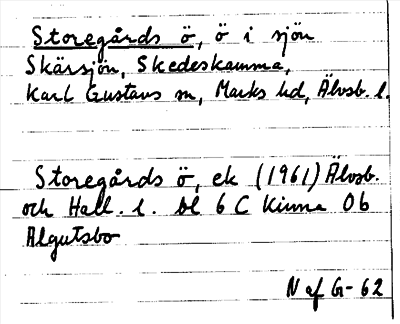 Storegårds ö, ö i sjön
Skärsjön, Skedeskamma,
Karl Gustavs sn, Marks hd, Älvsb. l.
Storegårds ö, ek (1961) Älvsb.
och Hall. l. bl 6 C Kinna 0b
Algutsbo
N af G- 62